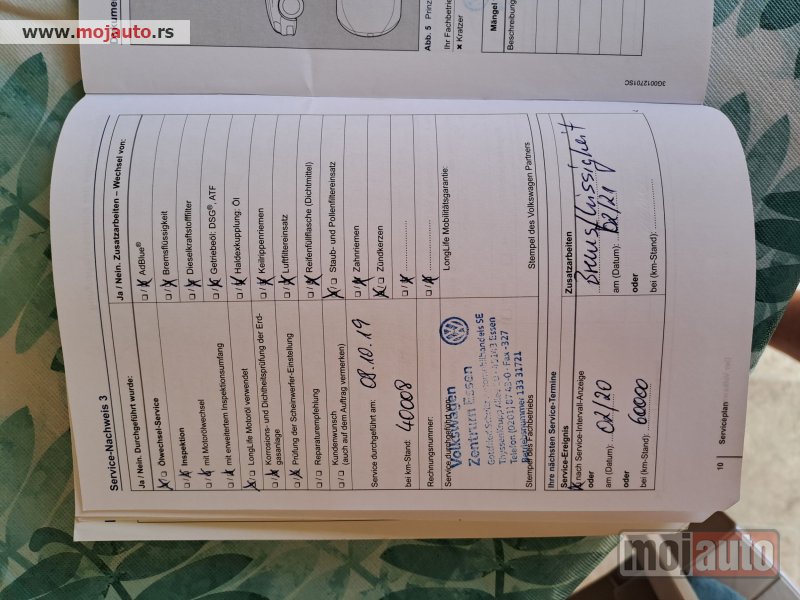 www.mojauto.rs
Service-Nachweis 3
Ja / Nein. Durchgeführt wurde:
Ölwechsel-Service
Inspektion
mit Motorölwechsel
mit erweitertem Inspektionsumfang
LongLife Motoröl verwendet
Korrosions- und Dichtheitsprüfung der Erd-
gasanlage
Prüfung der Scheinwerfer-Einstellung
Reparaturempfehlung
Kundenwunsch
(auch auf dem Auftrag vermerken)
Service durchgeführt am: 08.10.19
bei km-Stand: 40008
Rechnungsnummer:
Service durchgeführt von:
Volkswagen
Zentrum Essen
Stempel des Fachbetriebs
Ja / Nein. Zusatzarbeiten – Wechsel von:
AdBlue®
Bremsflüssigkeit
Dieselkraftstofffilter
Getriebeöl: DSG®, ATF
Haldexkupplung: Öl
Keilrippenriemen
Luftfiltereinsatz
Reifenfüllflasche (Dichtmittel)
Staub- und Pollenfiltereinsatz
Zahnriemen
Zündkerzen
LongLife Mobilitätsgarantie:
Stempel des Volkswagen Partners
Ihre nächsten Service-Termine
Service-Ereignis
nach Service-Intervall-Anzeige
oder
am (Datum): 02/20
oder
bei (km-Stand): 60000
Zusatzarbeiten
Bremsflüssigkeit
am (Datum): 02/21
oder
bei (km-Stand):
10 Serviceplan
Abb. 5 Prinz
Ihr Fachbetrie
x Kratzer
Mängel
Beschreibung
3G0012701SC
mojauto